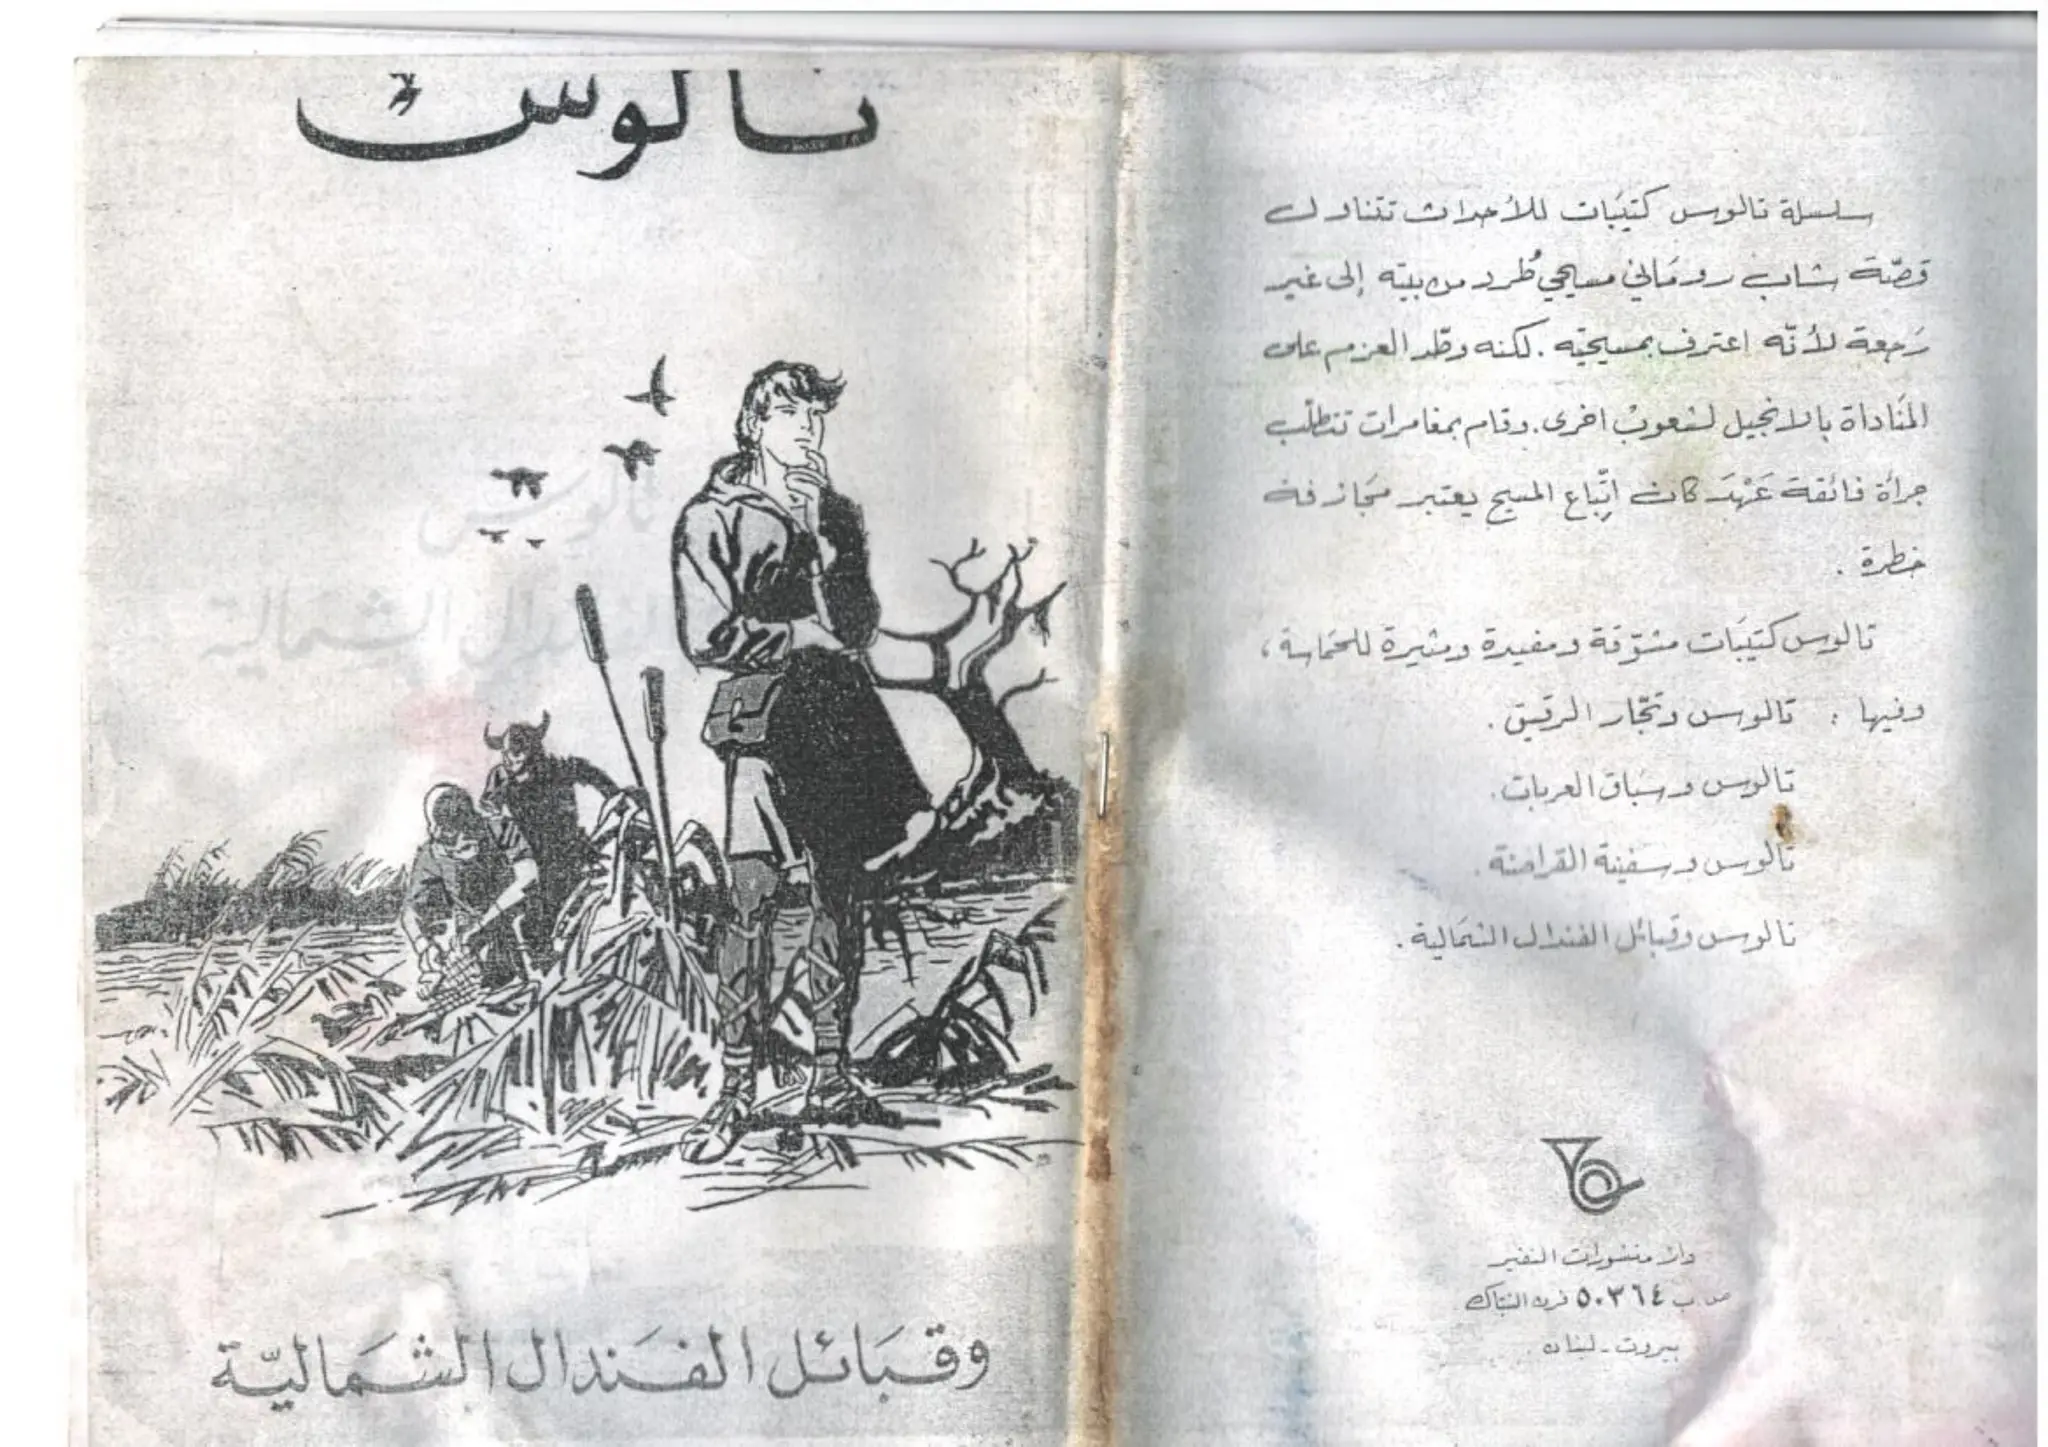 تالوس
وقبائل الفندال الشمالية
سلسلة تالوس كتيّبات للأحداث تتناول
قصّة شاب روماني مسيحي طُرد من بيته إلى غير
رَجعة لأنّه اعترف بمسيحيّته. لكنه وطّد العزم على
المنَاداة بالانجيل لشعوبْ اخرى. وقام بمغامرات تتطلّب
جرأة فائقة عَهْدَ كان اتّباع المسيح يعتبر مجَازفة
خطرة.
تالوس كتيّبَات مشوّقة ومفيدة ومثيرة للحَماسة،
وفيها: تالوس وتجّار الرقيق.
تالوس وسبَاق العربات.
تالوس وسفينة القراصنة.
تالوس وقبائل الفندال الشمَالية.
دار منشورات النفير
ص.ب ٥٠٣٦٤ فرن الشبّاك
بيروت - لبنان.